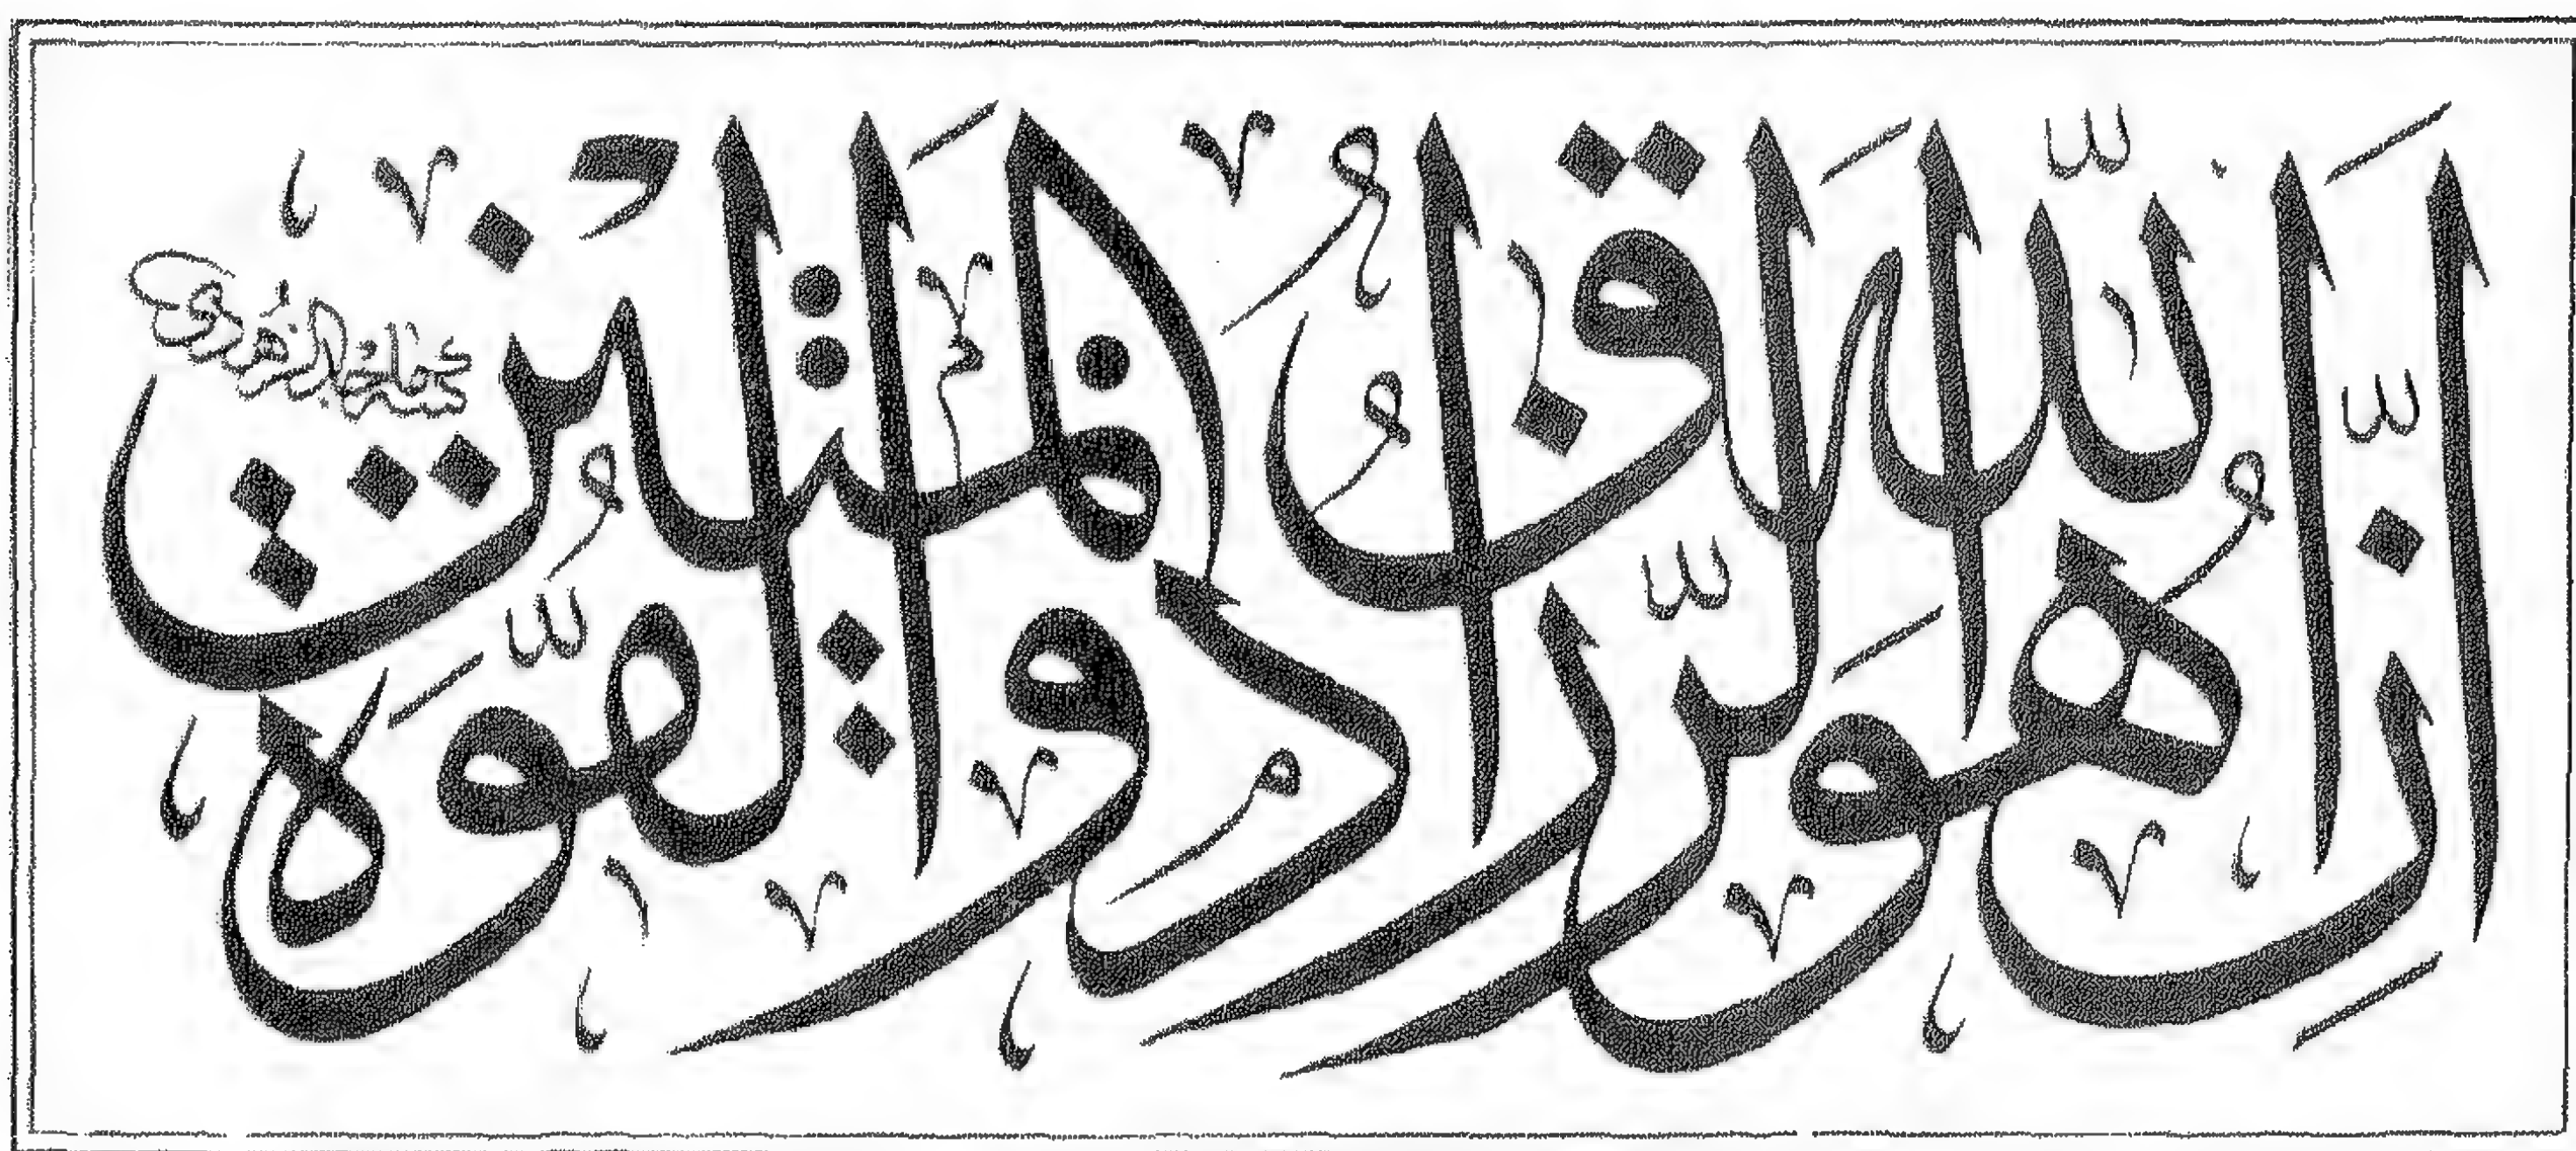 إِنَّ اللَّهَ هُوَ الرَّزَّاقُ ذُو الْقُوَّةِ الْمَتِينُ